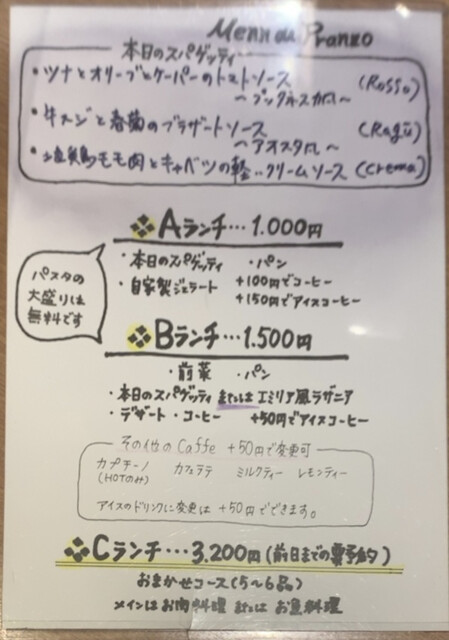 Menu du Pranzo
本日のスパゲッティ
・ツナとオリーブとケーパーのトマトソース (Rosso)
～プッタネスカ風～
・牛スジと春菊のブラザートソース (Ragù)
～アオスタ風～
・モモ肉とキャベツの軽いクリームソース (Crema)
Aランチ…1.000円
・本日のスパゲッティ ・パン
・自家製ジェラート +100円でコーヒー
+150円でアイスコーヒー
パスタの
大盛りは
無料です
Bランチ…1.500円
・前菜 ・パン
・本日のスパゲッティ または エミリア風ラザニア
・デザート ・コーヒー +50円でアイスコーヒー
その他のCaffe +50円で変更可
カプチーノ カフェラテ ミルクティー レモンティー
(HOTのみ)
アイスのドリンクに変更は +50円でできます。
Cランチ…3.200円(前日までの要予約)
おまかせコース(5〜6品)
メインはお肉料理 または お魚料理